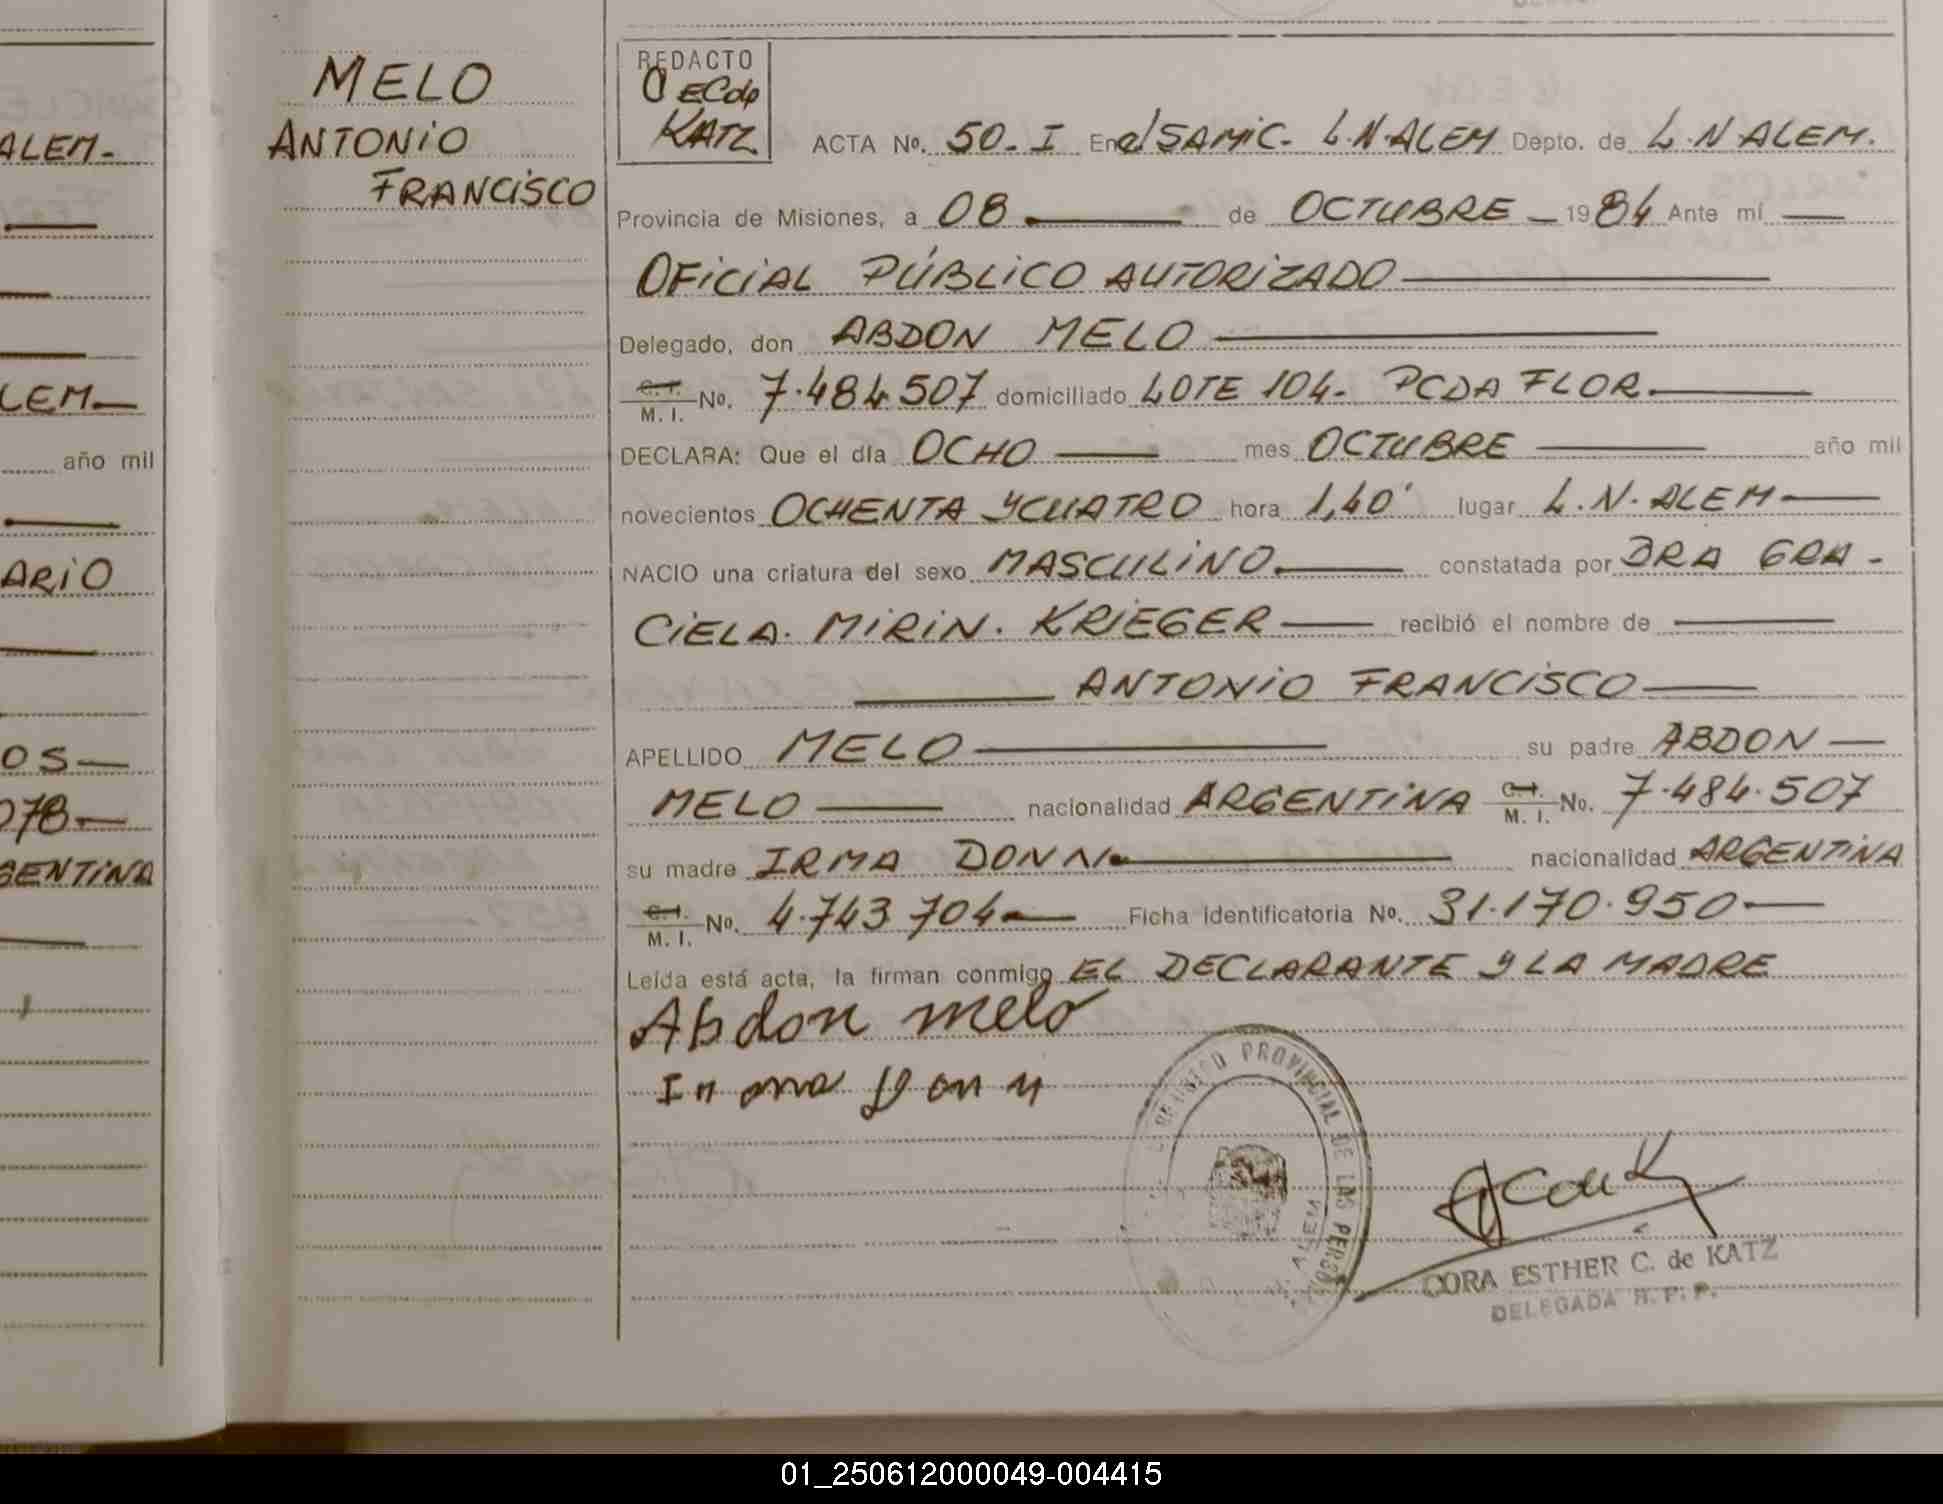 ALEM-
LEM
año mil
ARIO
OS
078
GENTINA
MELO
ANTONIO
FRANCISCO
REDACTO
KATZ
ACTA No. 50-I En el SAMIC- L.N ALEM Depto. de L.N ALEM.
Provincia de Misiones, a 08 de OCTUBRE 1984 Ante mí
OFICIAL PÚBLICO AUTORIZADO
Delegado, don ABDON MELO
C. I. M. I. No. 7.484.507 domiciliado LOTE 104- PCDA FLOR.
DECLARA: Que el día OCHO mes OCTUBRE año mil
novecientos OCHENTA Y CUATRO hora 1,40' lugar L.N. ALEM
NACIO una criatura del sexo MASCULINO. constatada por DRA GRA-
CIELA. MIRIN. KRIEGER recibió el nombre de
ANTONIO FRANCISCO
APELLIDO MELO su padre ABDON
MELO nacionalidad ARGENTINA C. I. M. I. No. 7.484.507
su madre IRMA DONN nacionalidad ARGENTINA
C. I. M. I. No. 4.743 704 Ficha identificatoria No. 31.170.950
Leída está acta, la firman conmigo EL DECLARANTE Y LA MADRE
Abdon melo
PROVINCIAL DE LAS PERSONAS
ALEM
CORA ESTHER C. de KATZ
DELEGADA R. P. P.
01_250612000049-004415